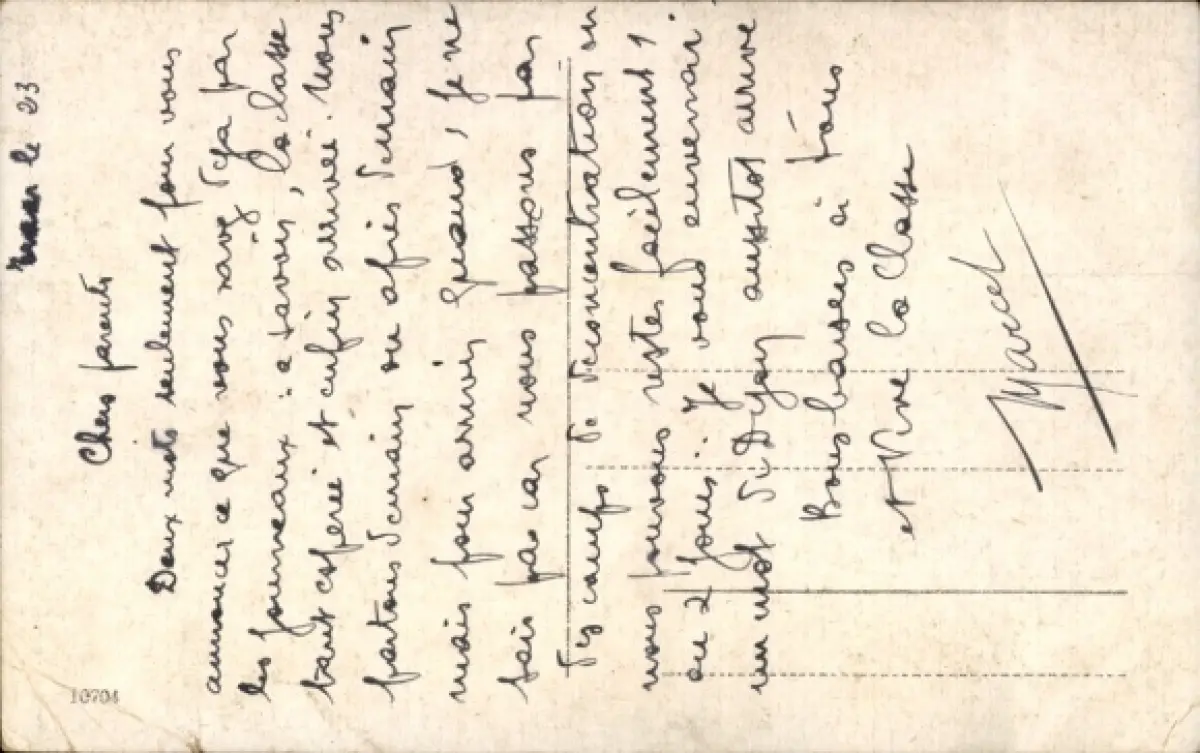 le 23
Chers parents
Deux mots seulement pour vous
annoncer ce que vous savez deja par
les journeaux : a savoir, la classe
tant esperé et enfin arrivée. Nous
partons demain ou après demain
mais pour arriver quand, je ne
sais pas car nous passons par
des camps de deconcentration ou
nous pouvons rester facilement 1
ou 2 jours. Je vous enverrai
un mot de Dijon aussitot arrive
Bons baisers à tous
et Vive la Classe
Marcel
10704